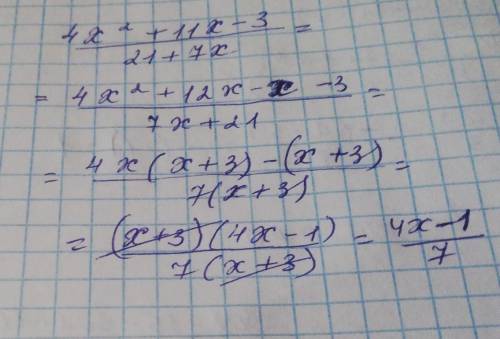 4x² + 11x - 3 / 21 + 7x =
= 4x² + 12x - x - 3 / 7x + 21 =
= 4x(x+3) - (x+3) / 7(x+3) =
= (x+3)(4x-1) / 7(x+3) = 4x-1 / 7